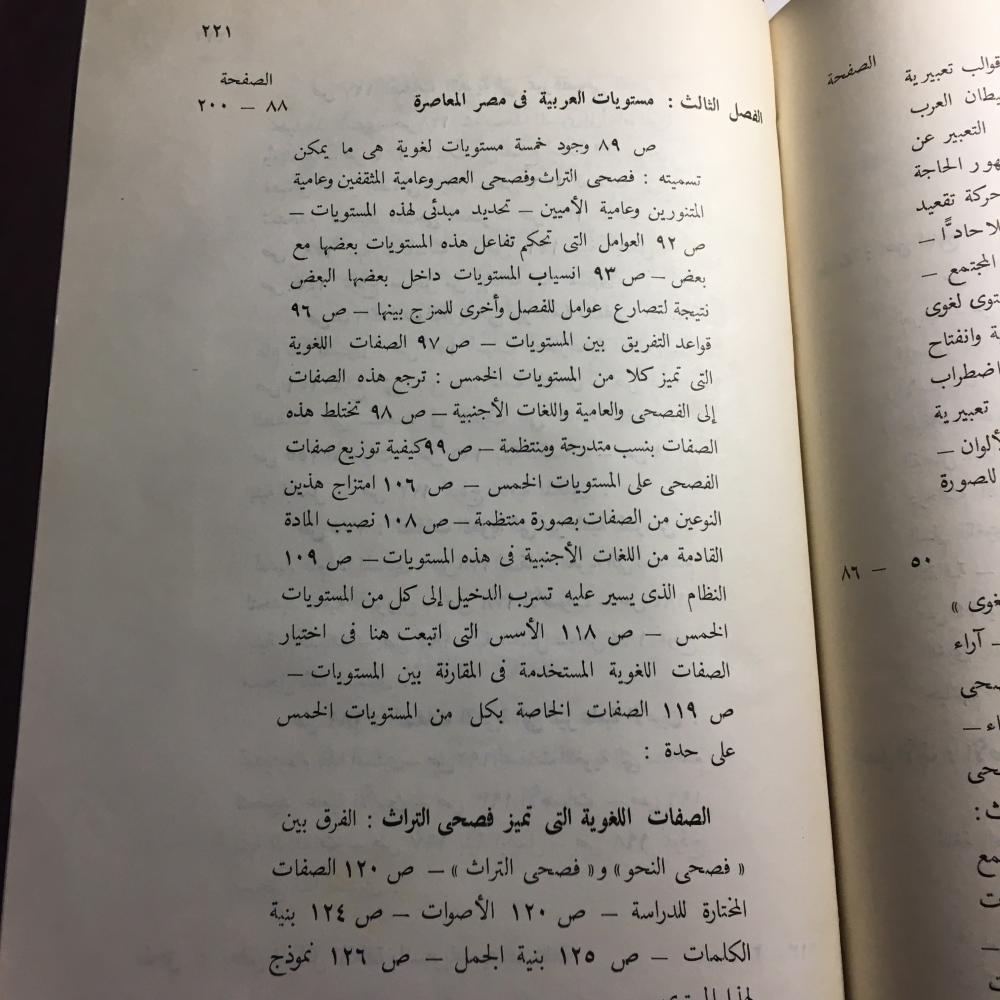 ٢٢١
الصفحة
الفصل الثالث : مستويات العربية فى مصر المعاصرة ٨٨ — ٢٠٠
ص ٨٩ وجود خمسة مستويات لغوية هى ما يمكن
تسميته : فصحى التراث وفصحى العصر وعامية المثقفين وعامية
المتنورين وعامية الأميين — تحديد مبدئى لهذه المستويات —
ص ٩٢ العوامل التى تحكم تفاعل هذه المستويات بعضها مع
بعض — ص ٩٣ انسياب المستويات داخل بعضها البعض
نتيجة لتصارع عوامل للفصل وأخرى للمزج بينها — ص ٩٦
قواعد التفريق بين المستويات — ص ٩٧ الصفات اللغوية
التى تميز كلا من المستويات الخمس : ترجع هذه الصفات
إلى الفصحى والعامية واللغات الأجنبية — ص ٩٨ تختلط هذه
الصفات بنسب متدرجة ومنتظمة — ص ٩٩ كيفية توزيع صفات
الفصحى على المستويات الخمس — ص ١٠٦ امتزاج هذين
النوعين من الصفات بصورة منتظمة — ص ١٠٨ نصيب المادة
القادمة من اللغات الأجنبية فى هذه المستويات — ص ١٠٩
النظام الذى يسير عليه تسرب الدخيل إلى كل من المستويات
الخمس — ص ١١٨ الأسس التى اتبعت هنا فى اختيار
الصفات اللغوية المستخدمة فى المقارنة بين المستويات —
ص ١١٩ الصفات الخاصة بكل من المستويات الخمس
على حدة :
الصفات اللغوية التى تميز فصحى التراث : الفرق بين
« فصحى النحو » و « فصحى التراث » — ص ١٢٠ الصفات
المختارة للدراسة — ص ١٢٠ الأصوات — ص ١٢٤ بنية
الكلمات — ص ١٢٥ بنية الجمل — ص ١٢٦ نموذج
الصفحة
قوالب تعبيرية
العرب
التعبير عن
الحاجة
حركة تقعيد
حادًّا —
المجتمع —
لغوى
وانفتاح
اضطراب
تعبيرية
للصورة
٥٠ — ٨٦
آراء